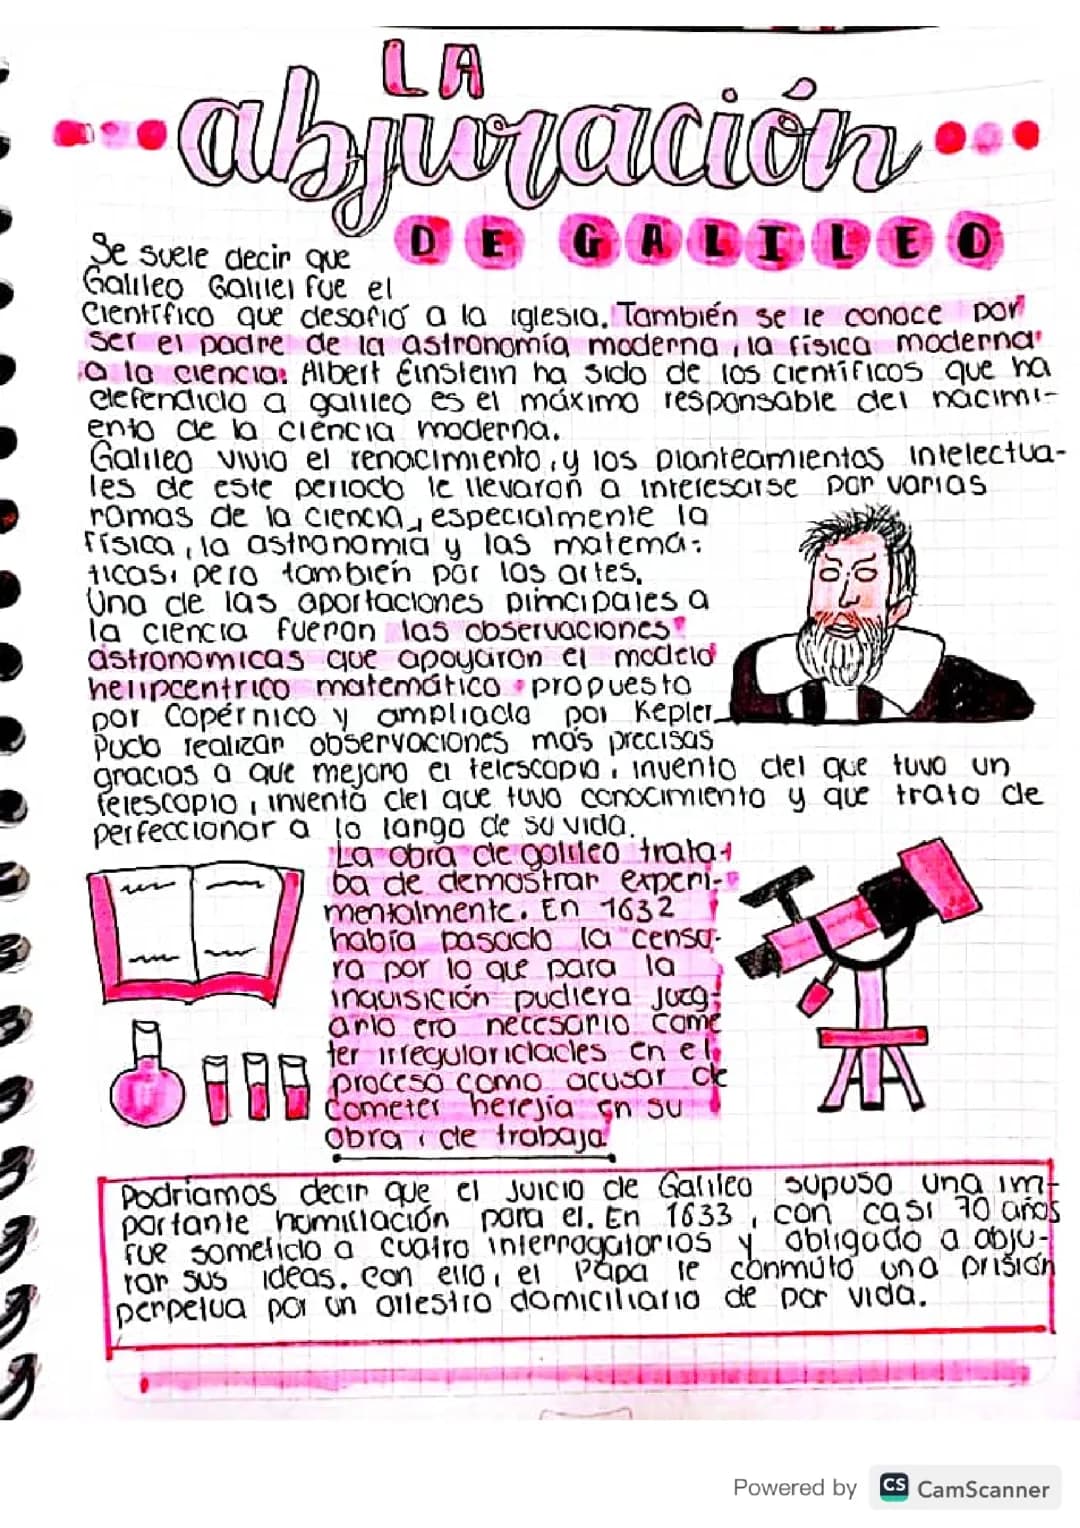 LA
abjuración
DE GALILEO
Se suele decir que
Galileo Galilei fue el
Científico que desafió a la iglesia. También se le conoce por
ser el padre de la astronomía moderna, la física moderna
a la ciencia. Albert Einstenn ha sido de los científicos que ha
defendido a galileo es el máximo responsable del nacimi-
ento de la ciencia moderna.
Galileo vivio el renacimiento, y los planteamientos intelectua-
les de este periodo le llevaron a interesarse por varias
ramas de la ciencia, especialmente la
física, la astronomia y las matema-
ticas, pero también por las artes.
Una de las aportaciones principales a
la ciencia fueron las observaciones
astronomicas que apoyaron el modelo
heliocentrico matemático propuesto
por Copérnico y ampliada por Kepler
Pudo realizan observaciones mas precisas
gracias a que mejoro el telescopio, invento del que tuvo un
telescopio, inventó del que tuvo conocimiento y que trato de
perfeccionar a lo largo de su vida.
La obra de galileo trata-
ba de demostrar experi-
mentalmente. En 1632
había pasado la censu-
ra por lo que para la
inquisición pudiera juzg-
arlo era necesario come
ter irregularidades en el
proceso como acusar de
cometer herejía en su
obra, de trabajo.
Podríamos decir que el juicio de Galileo supuso una im-
portante humillación para el. En 1633, con casi 70 años
fue sometido a cuatro interrogatorios y obligado a abju-
rar sus ideas. con ello, el Papa le conmutó una prisión
perpetua por un arrestro domiciliario de por vida.
Powered by CS CamScanner